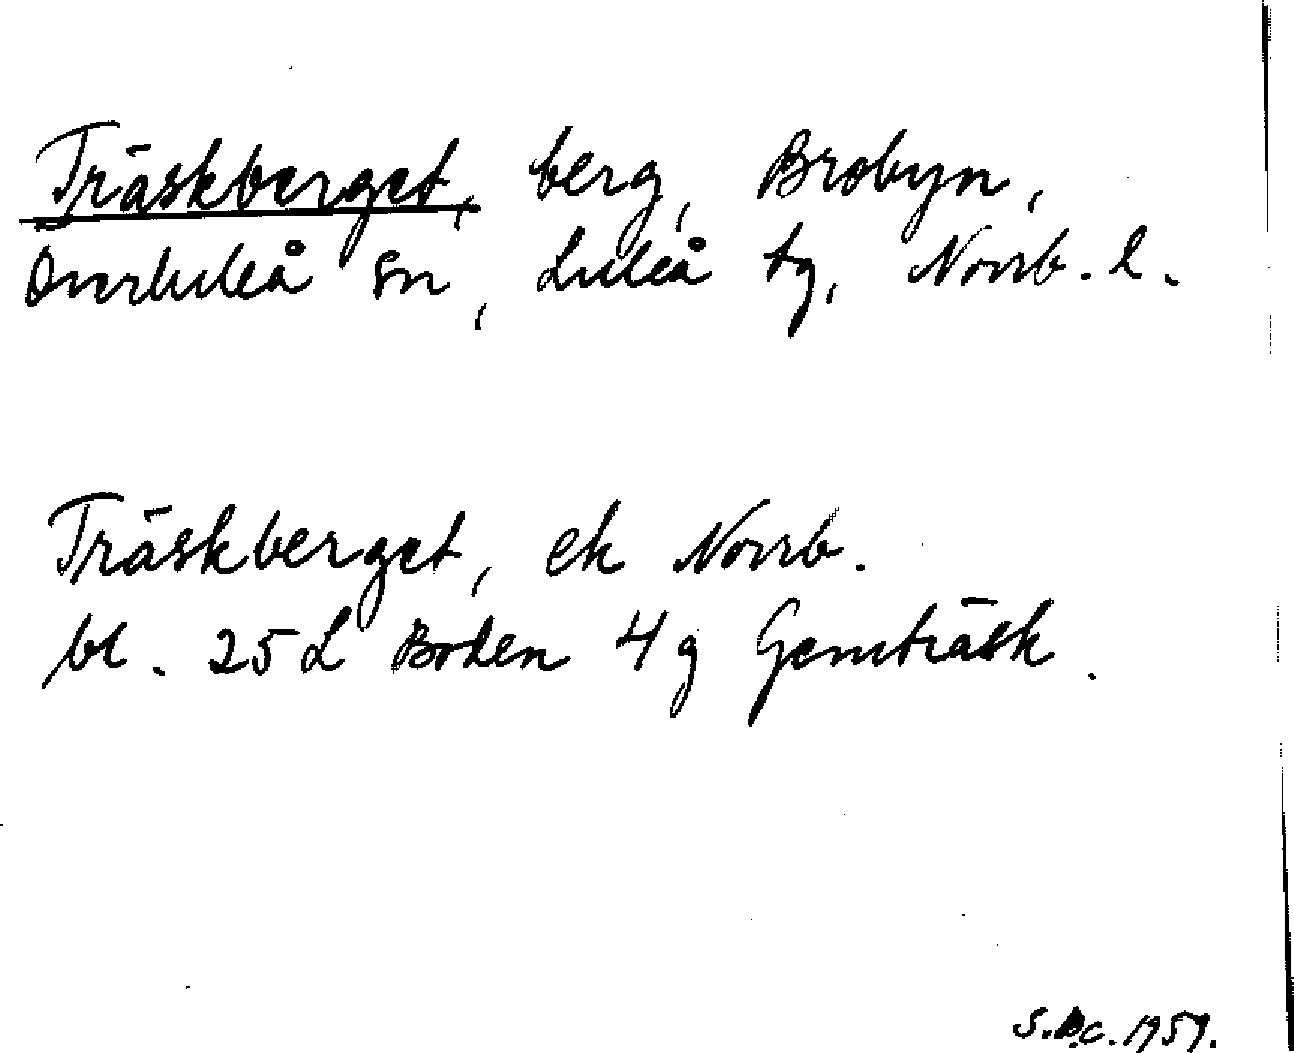 Träskberget, berg, Brobyn,
Överluleå sn, Luleå tg, Norrb. l.
Träskberget, ek Norrb.
bl. 25 L Boden 4 g Gemträsk.
S.B.C. 1959.